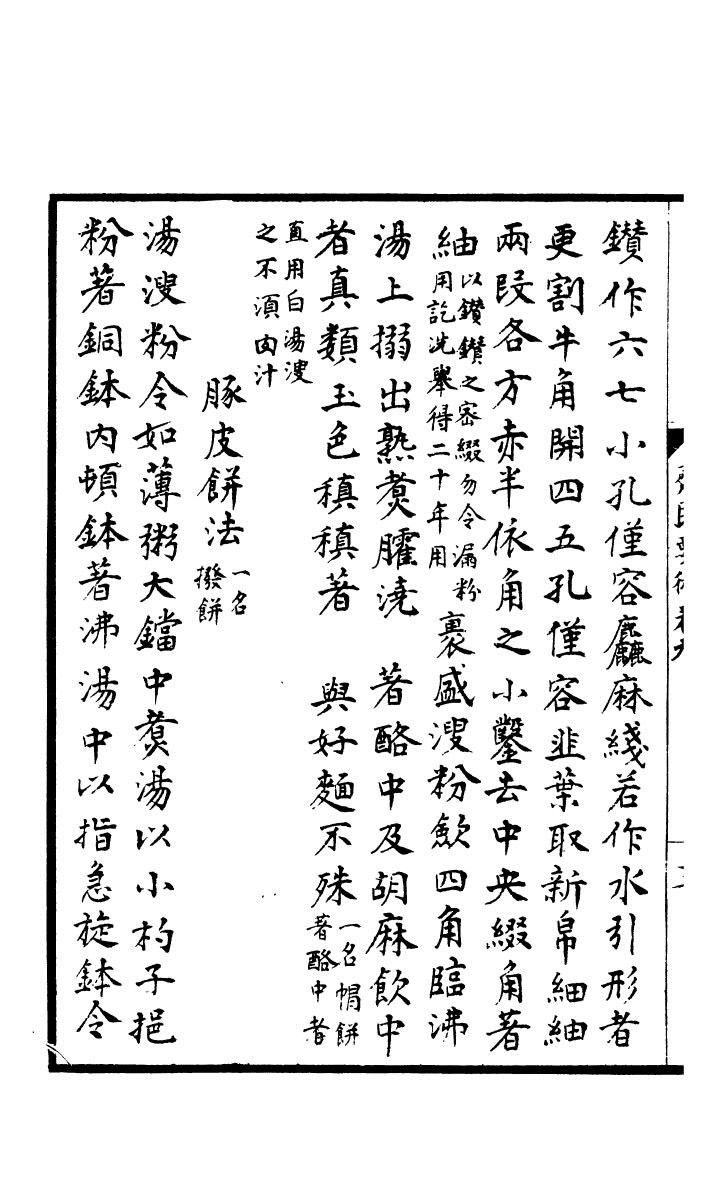 鑚作六七小孔僅容麤麻綫若作水引形者
更割牛角開四五孔僅容韭葉取新帛細紬
兩段各方赤半依角之小鑿去中央綴角著
紬以鑚鑚之密綴勿令漏粉
用訖洗舉得二十年用
裹盛溲粉斂四角臨沸
湯上搦出熟煑臛澆 著酪中及胡麻飲中
者真類玉色稹稹著 與好麵不殊一名㡌餅
著酪中者
直用白湯溲
之不須肉汁
豚皮餅法一名
撥餅
湯溲粉令如薄粥大鐺中煑湯以小杓子挹
粉著銅鉢内頓鉢著沸湯中以指急旋鉢令
齊民要術卷九